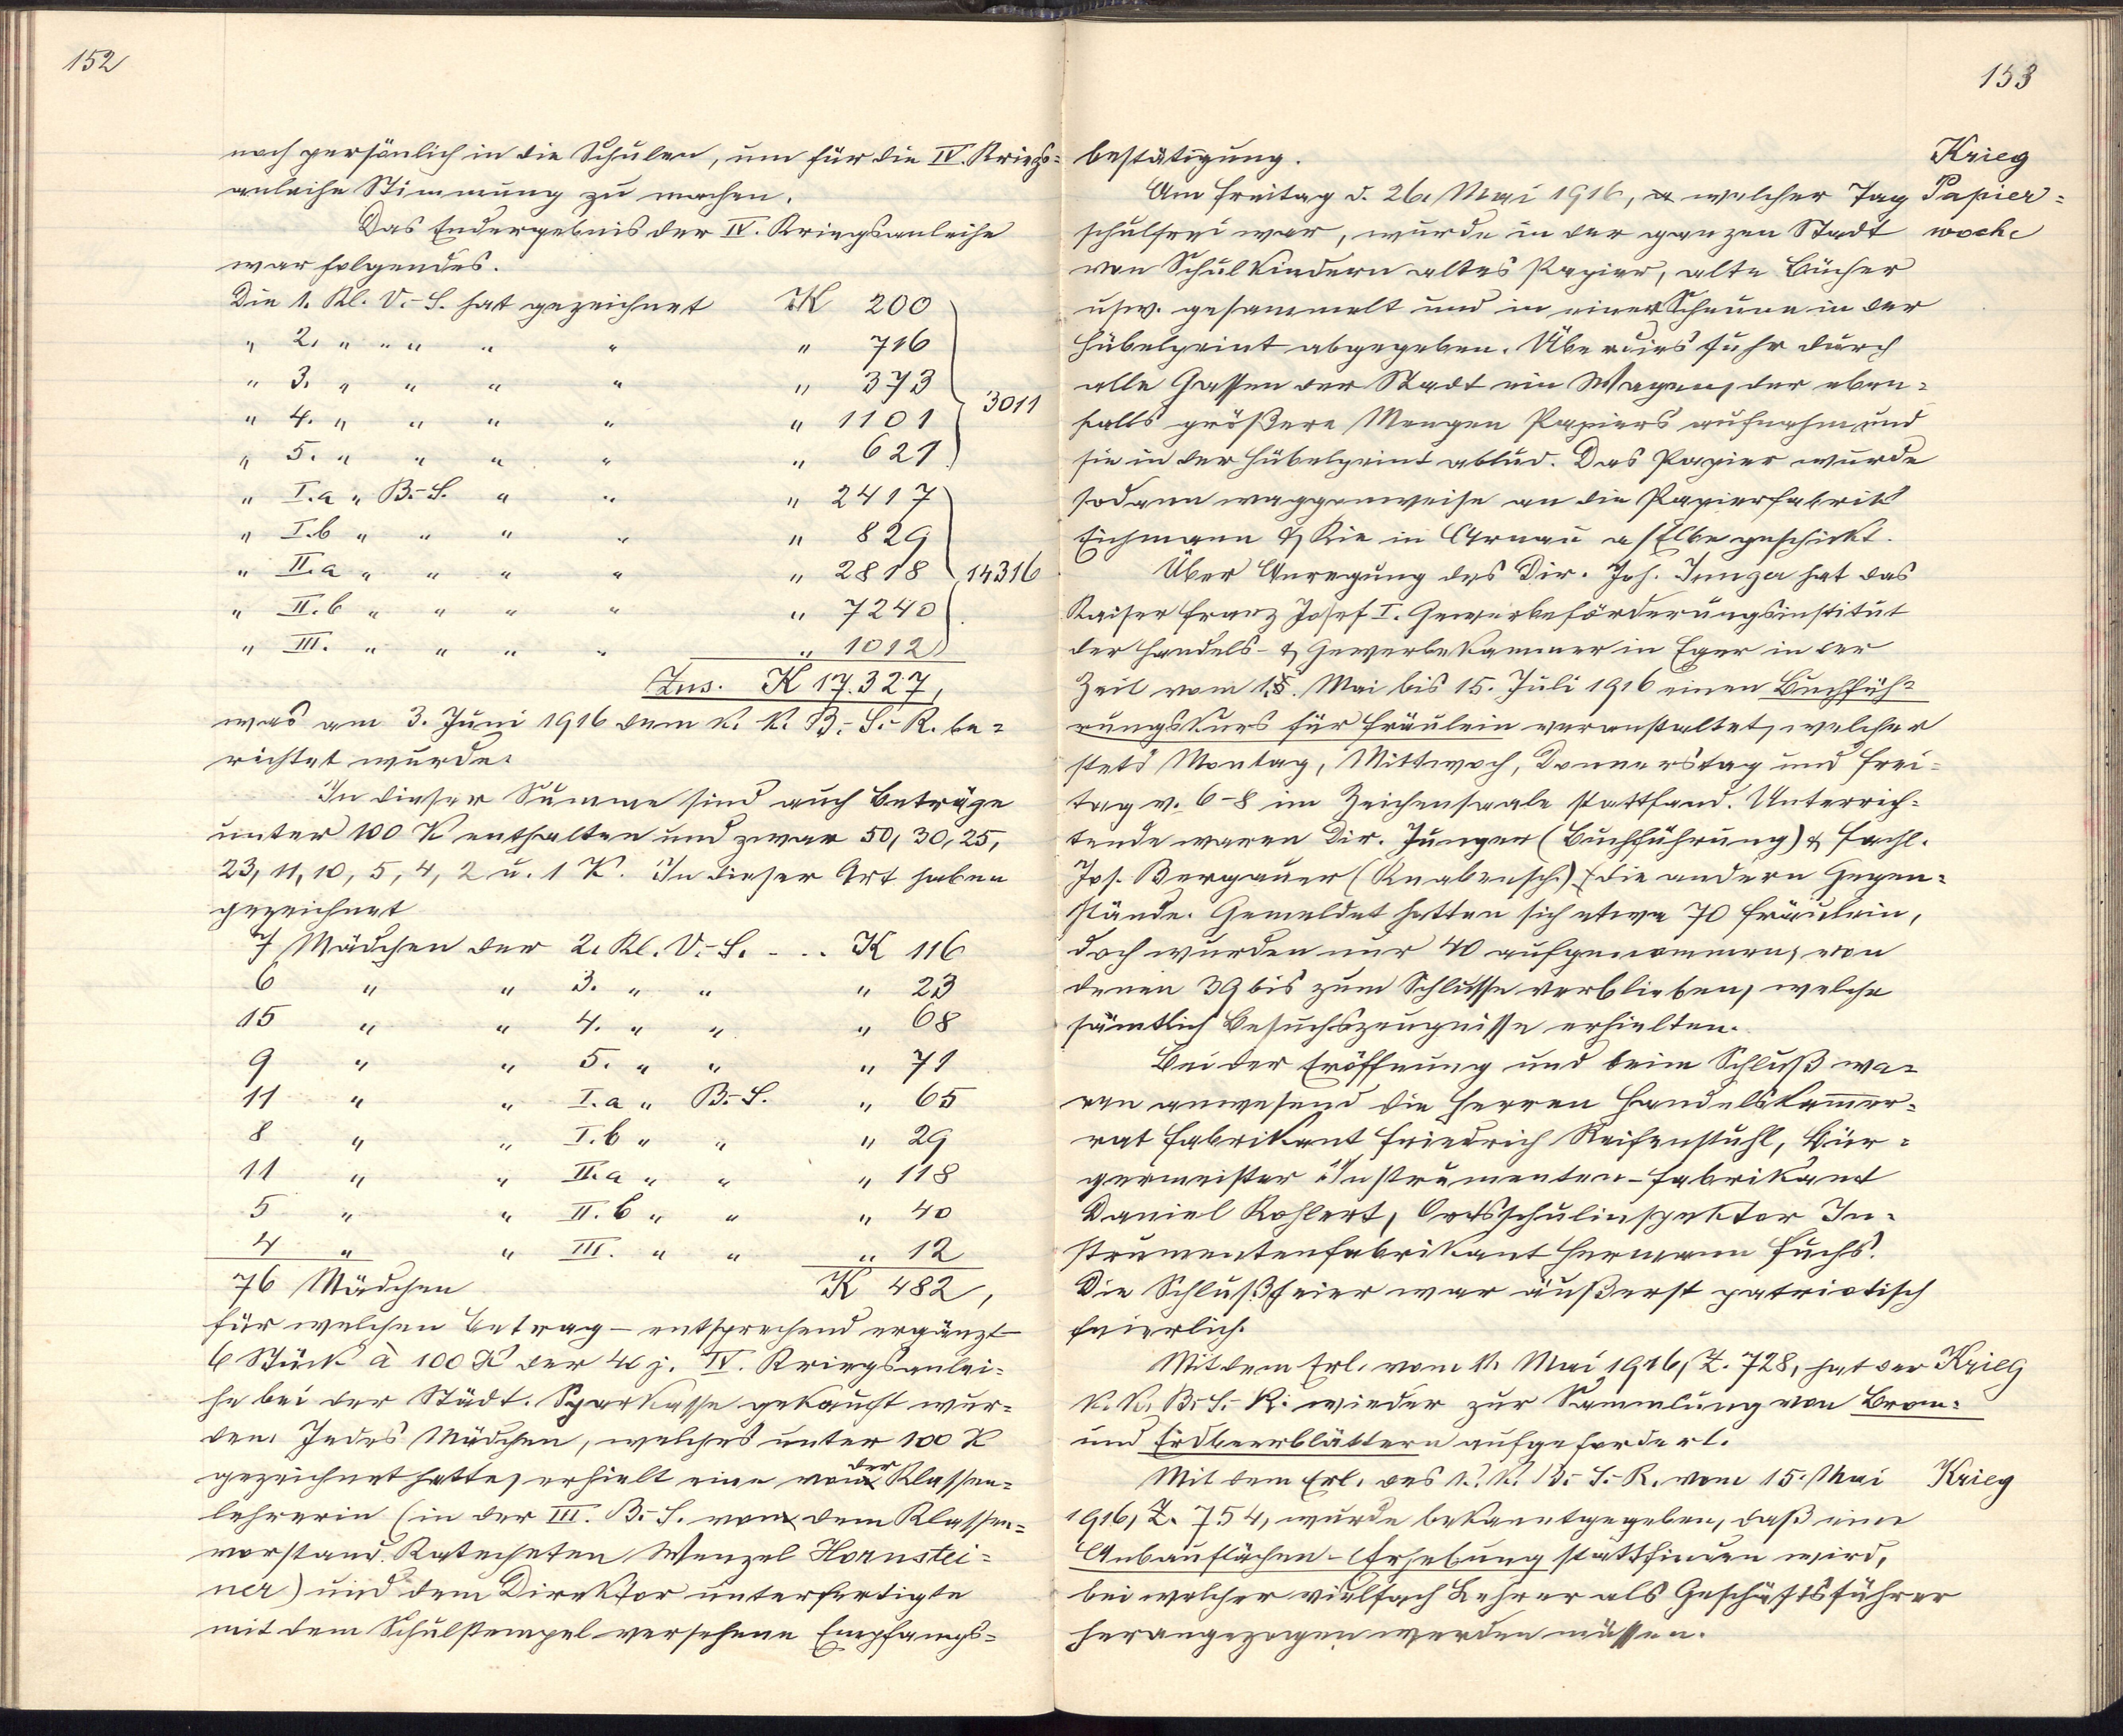 152
noch persönlich in die Schulen, um für die IV. Kriegs=
anleihe Stimmung zu machen.
Das Endergebnis der IV. Kriegsanleihe
war folgendes.
Die 1. Kl. V.-S. hat gezeichnet K 200
" 2. " " " " " " 716
" 3. " " " " " 373
" 4. " " " " " 1101
" 5. " " " " " 621
3011
" I.a " B.-S. " " " 2417
" I.b " " " " " 829
" II.a " " " " " 2818
" II.b " " " " " 7240
" III. " " " " " 1012
14316
Zus. K 17.327,
was am 3. Juni 1916 dem k. k. B.-S.-R. be=
richtet wurde.
In dieser Summe sind auch Beträge
unter 100 K enthalten und zwar 50, 30, 25,
23, 11, 10, 5, 4, 2 u. 1 K. In dieser Art haben
gezeichnet
7 Mädchen der 2. Kl. V.-S. - .. K 116
6 " " 3. " " " 23
15 " " 4. " " " 68
9 " " 5. " " " 71
11 " " I.a " B.-S. " 65
8 " " I.b " " " 29
11 " " II.a " " " 118
5 " " II.b " " " 40
4 " " III. " " " 12
76 Mädchen K 482,
für welchen Betrag – entsprechend ergänzt –
6 Stück à 100 K der 40 j. IV. Kriegsanlei=
he bei der Städt. Sparkasse gekauft wur=
den. Jedes Mädchen, welches unter 100 K
gezeichnet hatte, erhielt eine von der Klassen=
lehrerin (in der III. B.-S. von dem Klassen=
vorstand Katecheten Wenzel Hornstei=
ner) und dem Direktor unterfertigte
mit dem Schulstempel versehene Empfangs=
153
bestätigung.
Krieg
Papier=
woche
Am Freitag d. 26. Mai 1916, welcher Tag
schulfrei war, wurde in der ganzen Stadt
von Schulkindern altes Papier, alte Bücher
usw. gesammelt und in einer Scheune in der
Hübelpeint abgegeben. Überdies fuhr durch
alle Gassen der Stadt ein Wagen, der eben=
falls größere Mengen Papiers aufnahm und
sie in der Hübelpeint ablud. Das Papier wurde
sodann waggonweise an die Papierfabrik
Eichmann & Kie in Arnau a/Elbe geschickt.
Über Anregung des Dir. Joh. Junger hat das
Kaiser Franz Josef I. Gewerbeförderungsinstitut
der Handels- & Gewerbekammer in Eger in der
Zeit vom 15. Mai bis 15. Juli 1916 einen Buchfüh=
rungskurs für Fräulein veranstaltet, welcher
stets Montag, Mittwoch, Donnerstag und Frei=
tag v. 6-8 im Zeichensaale stattfand. Unterrich=
tende waren Dir. Junger (Buchführung) & Fachl.
Jos. Bergauer (Knabensch.) (die andern Gegen=
stände. Gemeldet hatten sich etwa 70 Fräulein,
doch wurden nur 40 aufgenommen, von
denen 39 bis zum Schlusse verblieben, welche
sämtlich Besuchszeugnisse erhielten.
Bei der Eröffnung und beim Schluß wa=
ren anwesend die Herren Handelskammer=
rat Fabrikant Friedrich Reifenstuhl, Bür=
germeister Instrumenten-Fabrikant
Daniel Kohlert, Ortsschulinspektor In=
strumentenfabrikant Hermann Fuchs.
Die Schlußfeier war äußerst patriotisch
feierlich.
Mit dem Erl. vom 11. Mai 1916, Z. 728, hat der
Krieg
k. k. B.-S.-R. wieder zur Sammlung von Brom=
und Erdbeerblättern aufgefordert.
Mit dem Erl. des k. k. B.-S.-R. vom 15. Mai
Krieg
1916, Z. 754, wurde bekanntgegeben, daß eine
Anbauflächen-Erhebung stattfinden wird,
bei welcher vielfach Lehrer als Geschäftsführer
herangezogen werden müssen.